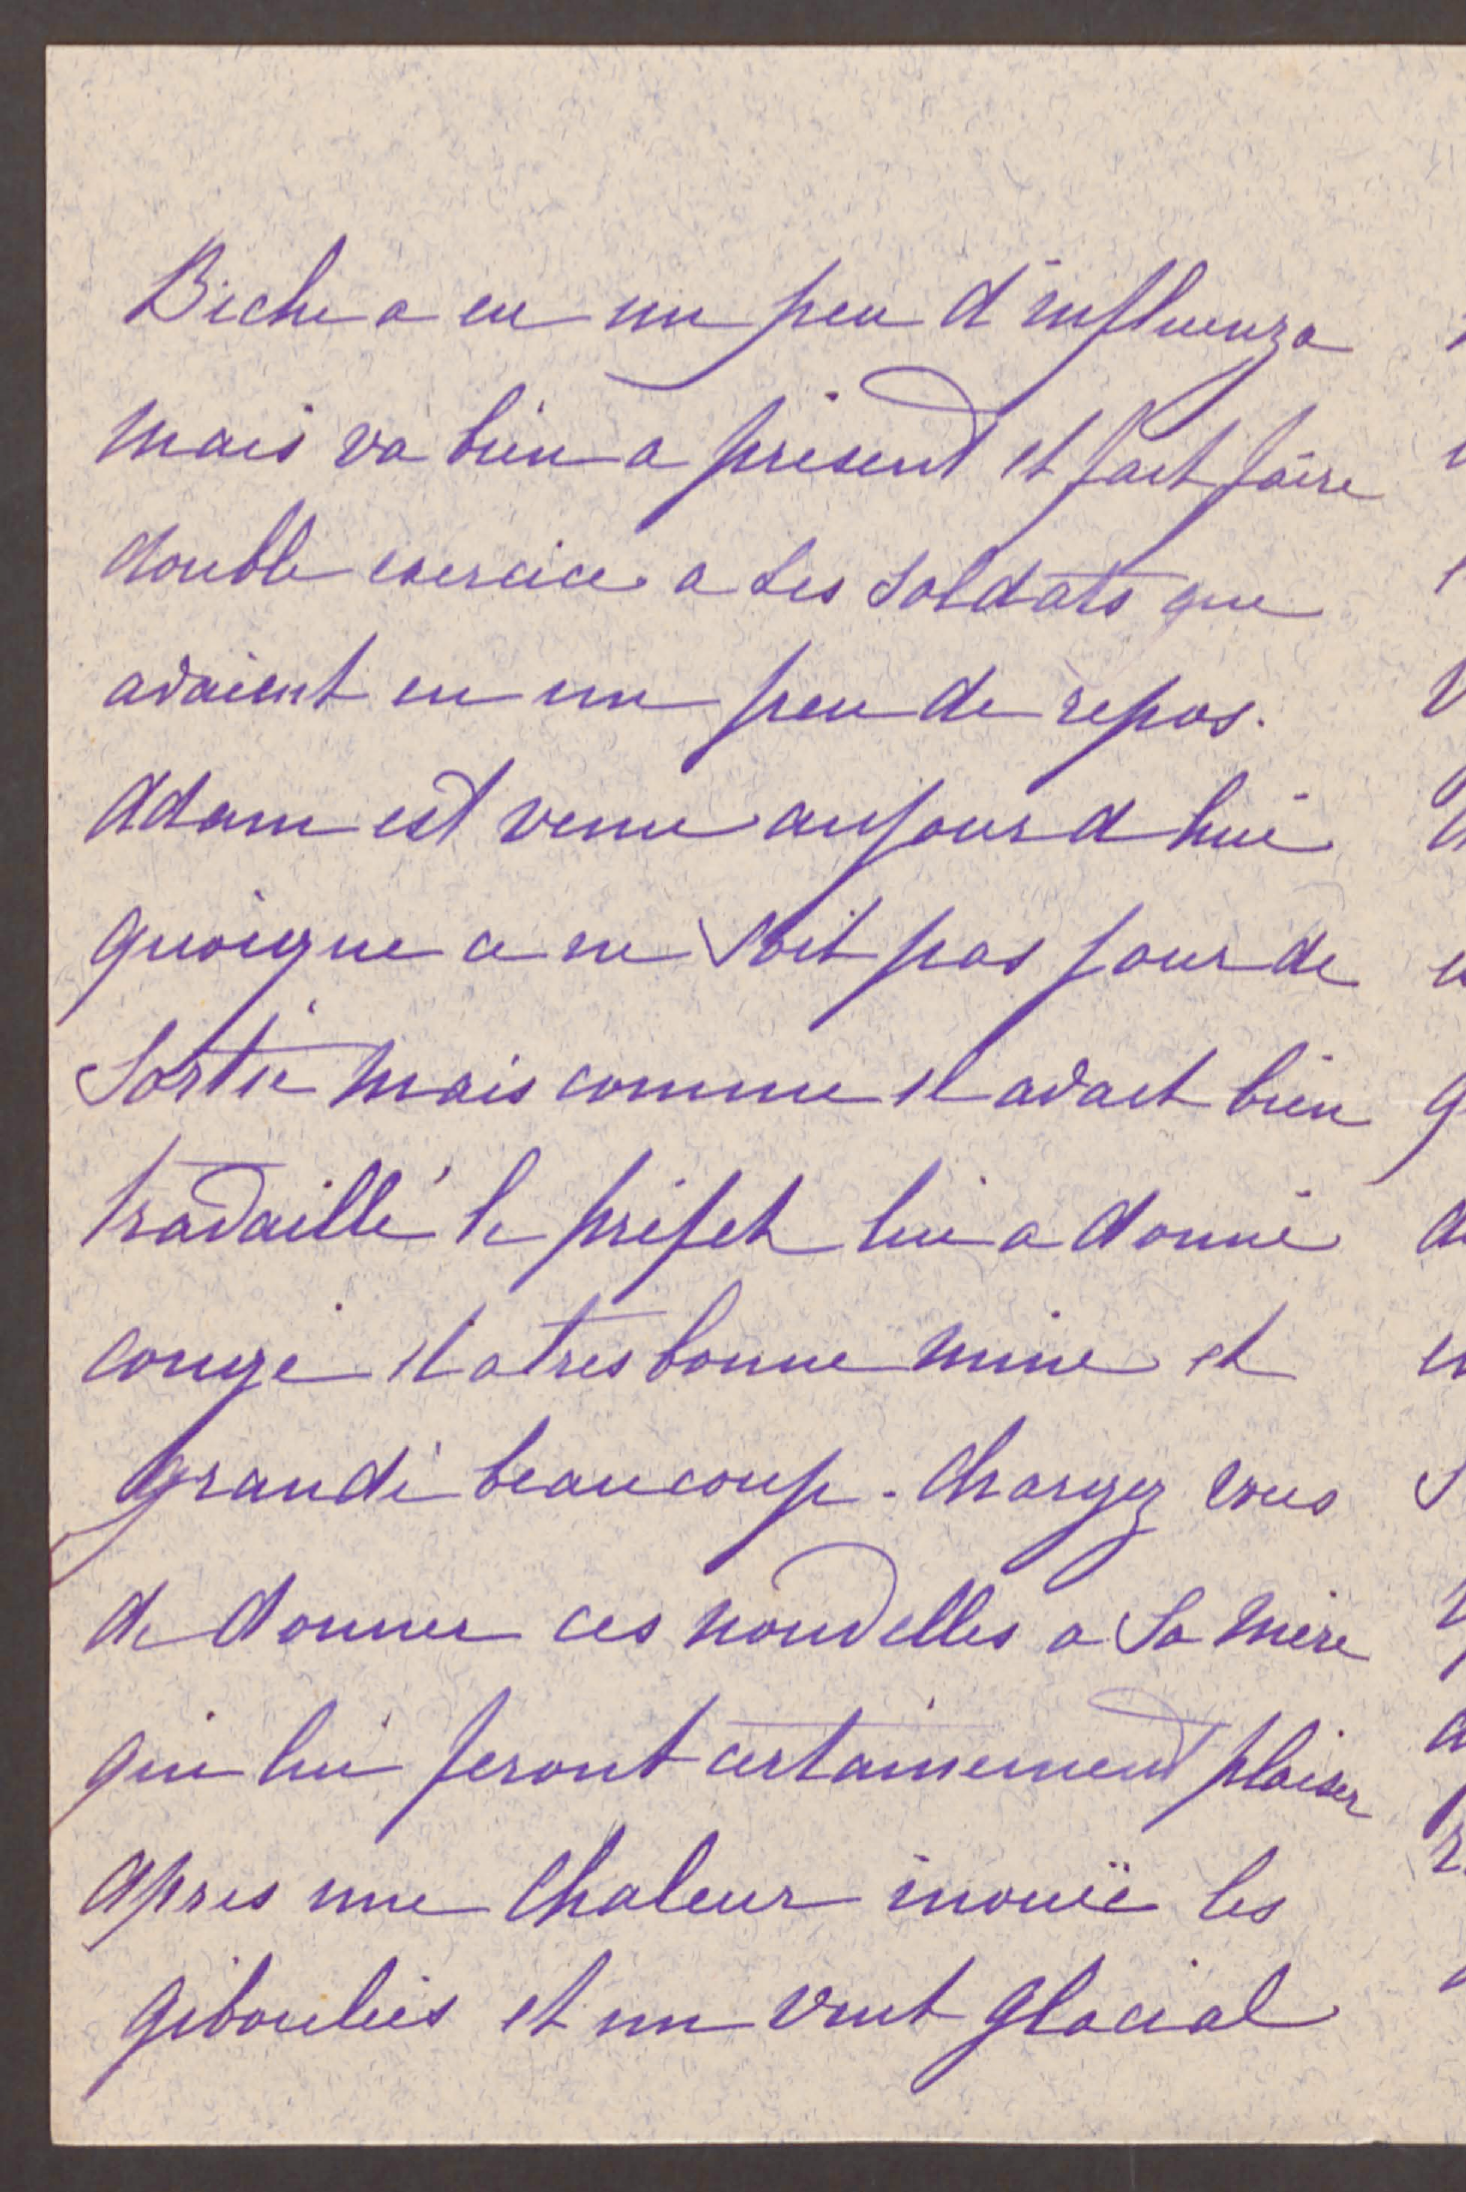 Biche a eu un peu d'influenza
mais va bien a présent et fait faire
double exercice a ses soldats que
avaient eu un peu de repos.
Adam est venu aujourd hui
quoique ce ne soit pas jour de
sortie mais comme il avait bien
travaillé le préfet lui a donné
congé il a tres bonne mine et
grandi beaucoup - chargez vous
de donner ces nouvelles a sa mère
qui lui feront certainement plaisir
apres une chaleur inouïe les
giboulées et un vent glacial